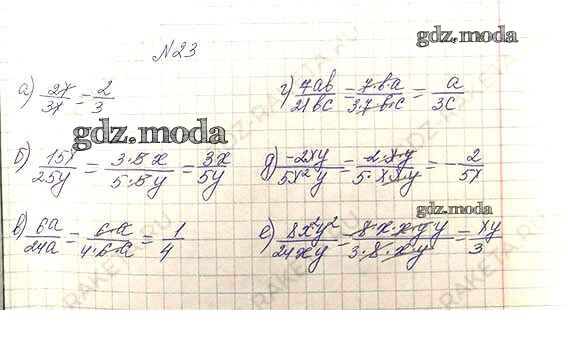 №23
gdz.moda
а) 2x/3x = 2/3
г) 7ab/21bc = 7·b·a/3·7·b·c = a/3c
gdz.moda
б) 15x/25y = 3·5x/5·5y = 3x/5y
д) -2xy/5x²y = -2·x·y/5·x·x·y = -2/5x
gdz.moda
в) 6a/24a = 6·a/4·6·a = 1/4
е) 8x²y²/24xy = 8·x·x·y·y/3·8·x·y = xy/3
RAKETA.RU